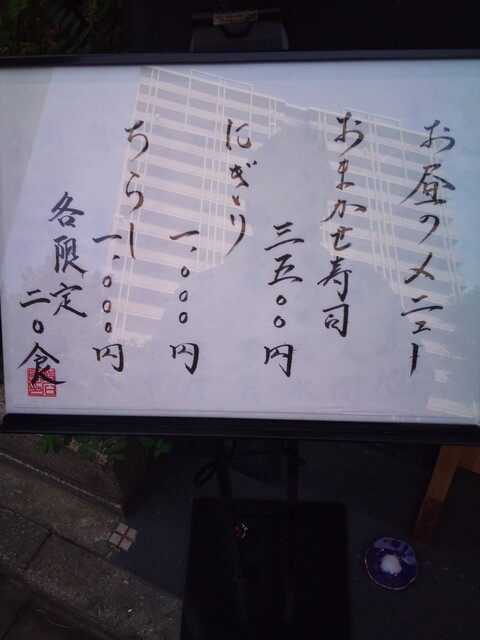 お昼のメニュー
おまかせ寿司
三五〇〇円
にぎり
一、〇〇〇円
ちらし
一、〇〇〇円
各限定
二〇食